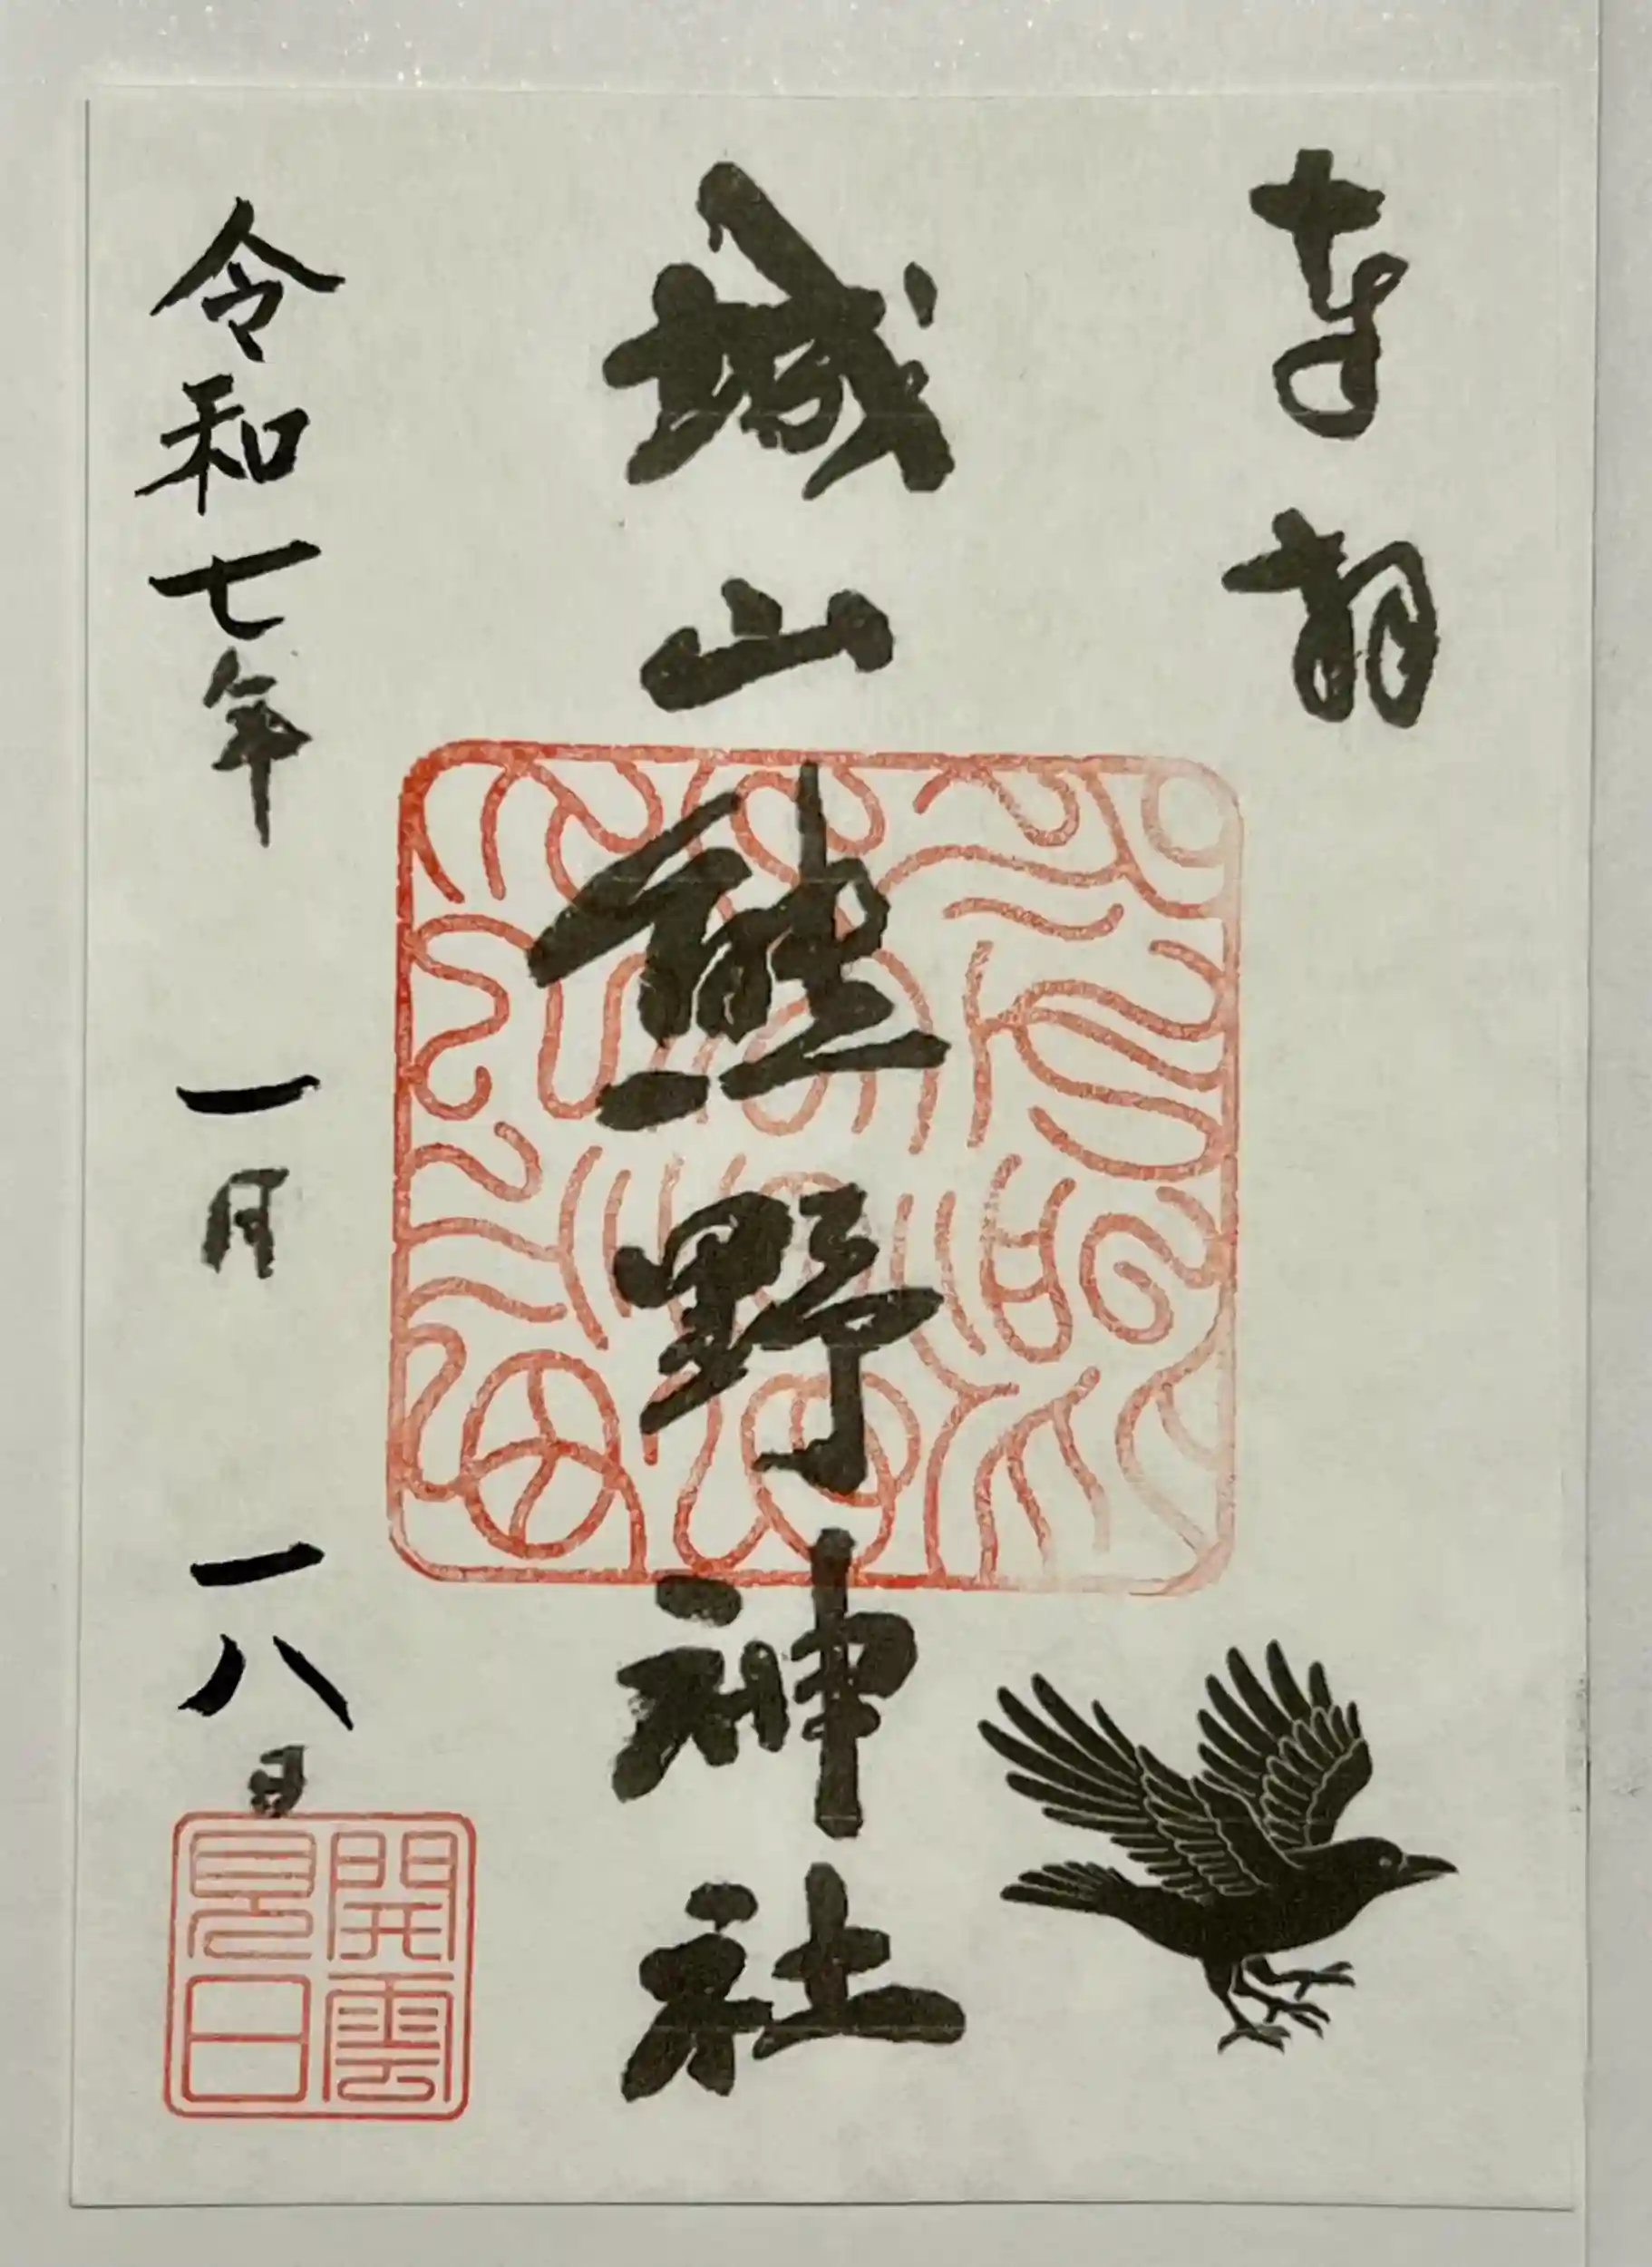 奉拝
城山熊野神社
令和七年 一月 一八日
開雲見日